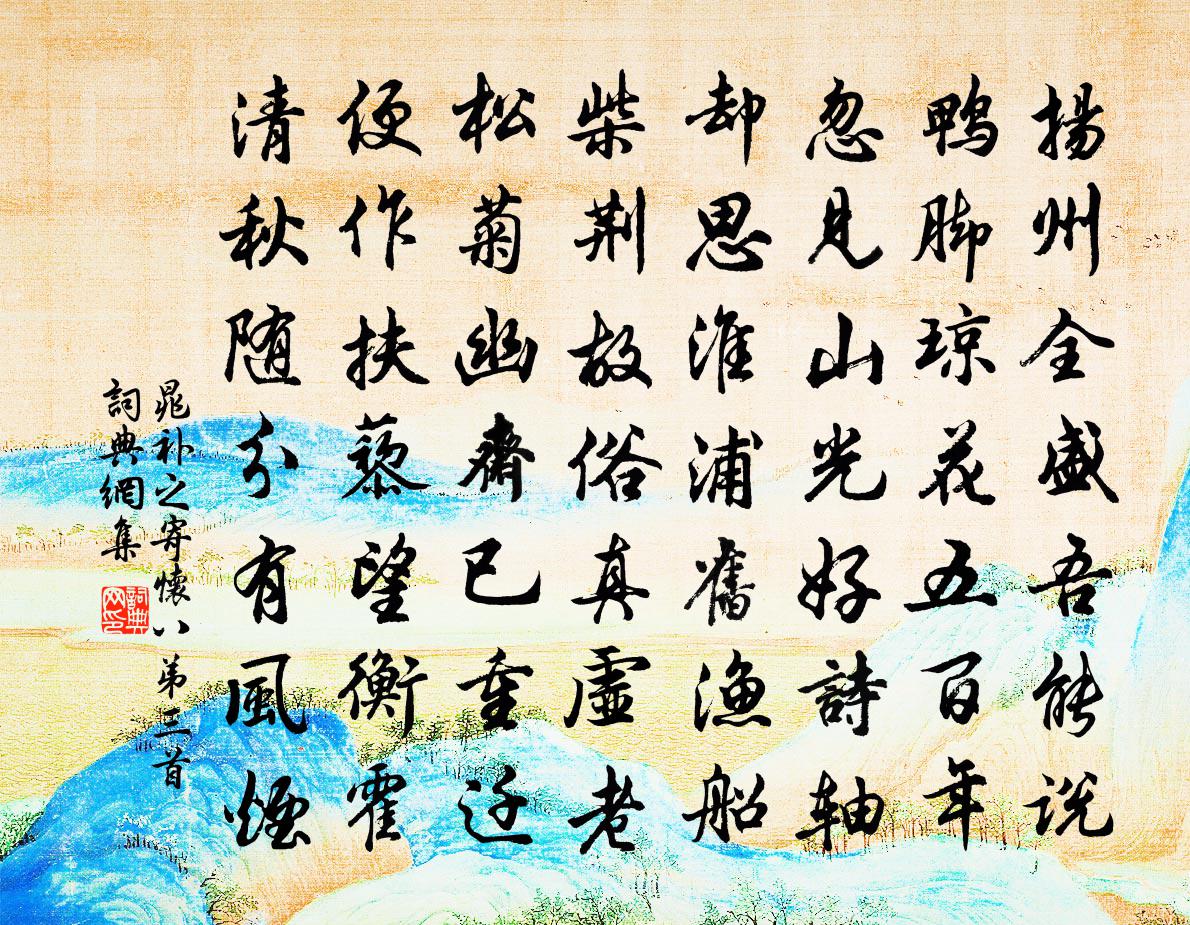 揚州全盛吾能說
鴨脚琼花五百年
忽見山光好詩軸
却思淮浦舊漁船
柴荆故俗真虛老
松菊幽齋已重迁
便作扶藜望衡霍
清秋随分有風煙
晁补之寄懷八弟三首
詞典網集
詞典網印